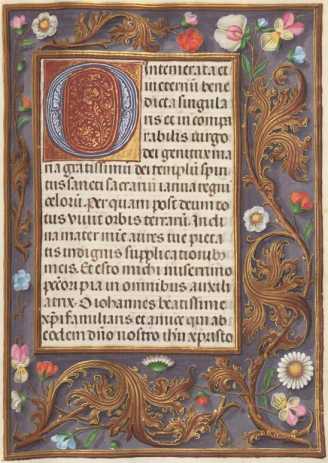 O Intemerata et
in eternum bene
dicta singula
ris et in compa
rabilis virgo
dei genitrix ma
ria gratissimū dei templū spiri
tus sancti sacrariū ianua regni
celorū. Per quam post deum to
tus vivit orbis terrarū. Incli
na mater mīe aures tue pieta
tis indignis supplicationib
meis. Et esto michi miserrimo
pctori pia in omnibus auxili
atrix. O iohannes beatissime
xpi familiaris et amice qui ab
eodem dn̄o nostro ihū xpristo